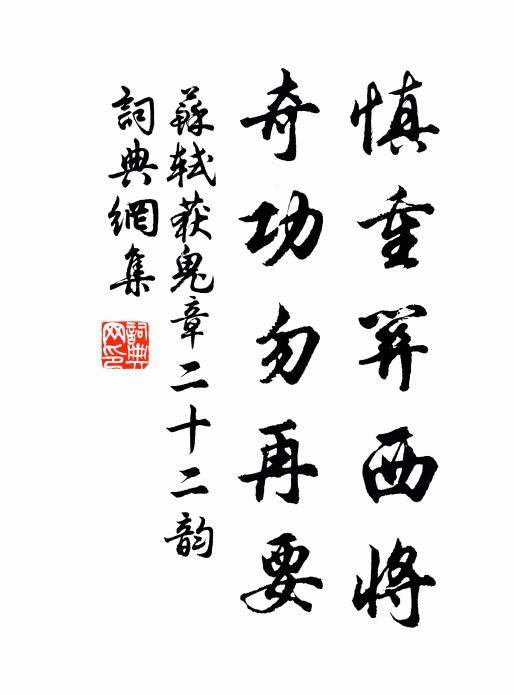 慎重關西將
奇功勿再要
蘇軾获鬼章二十二韵
詞典網集
詞典网印